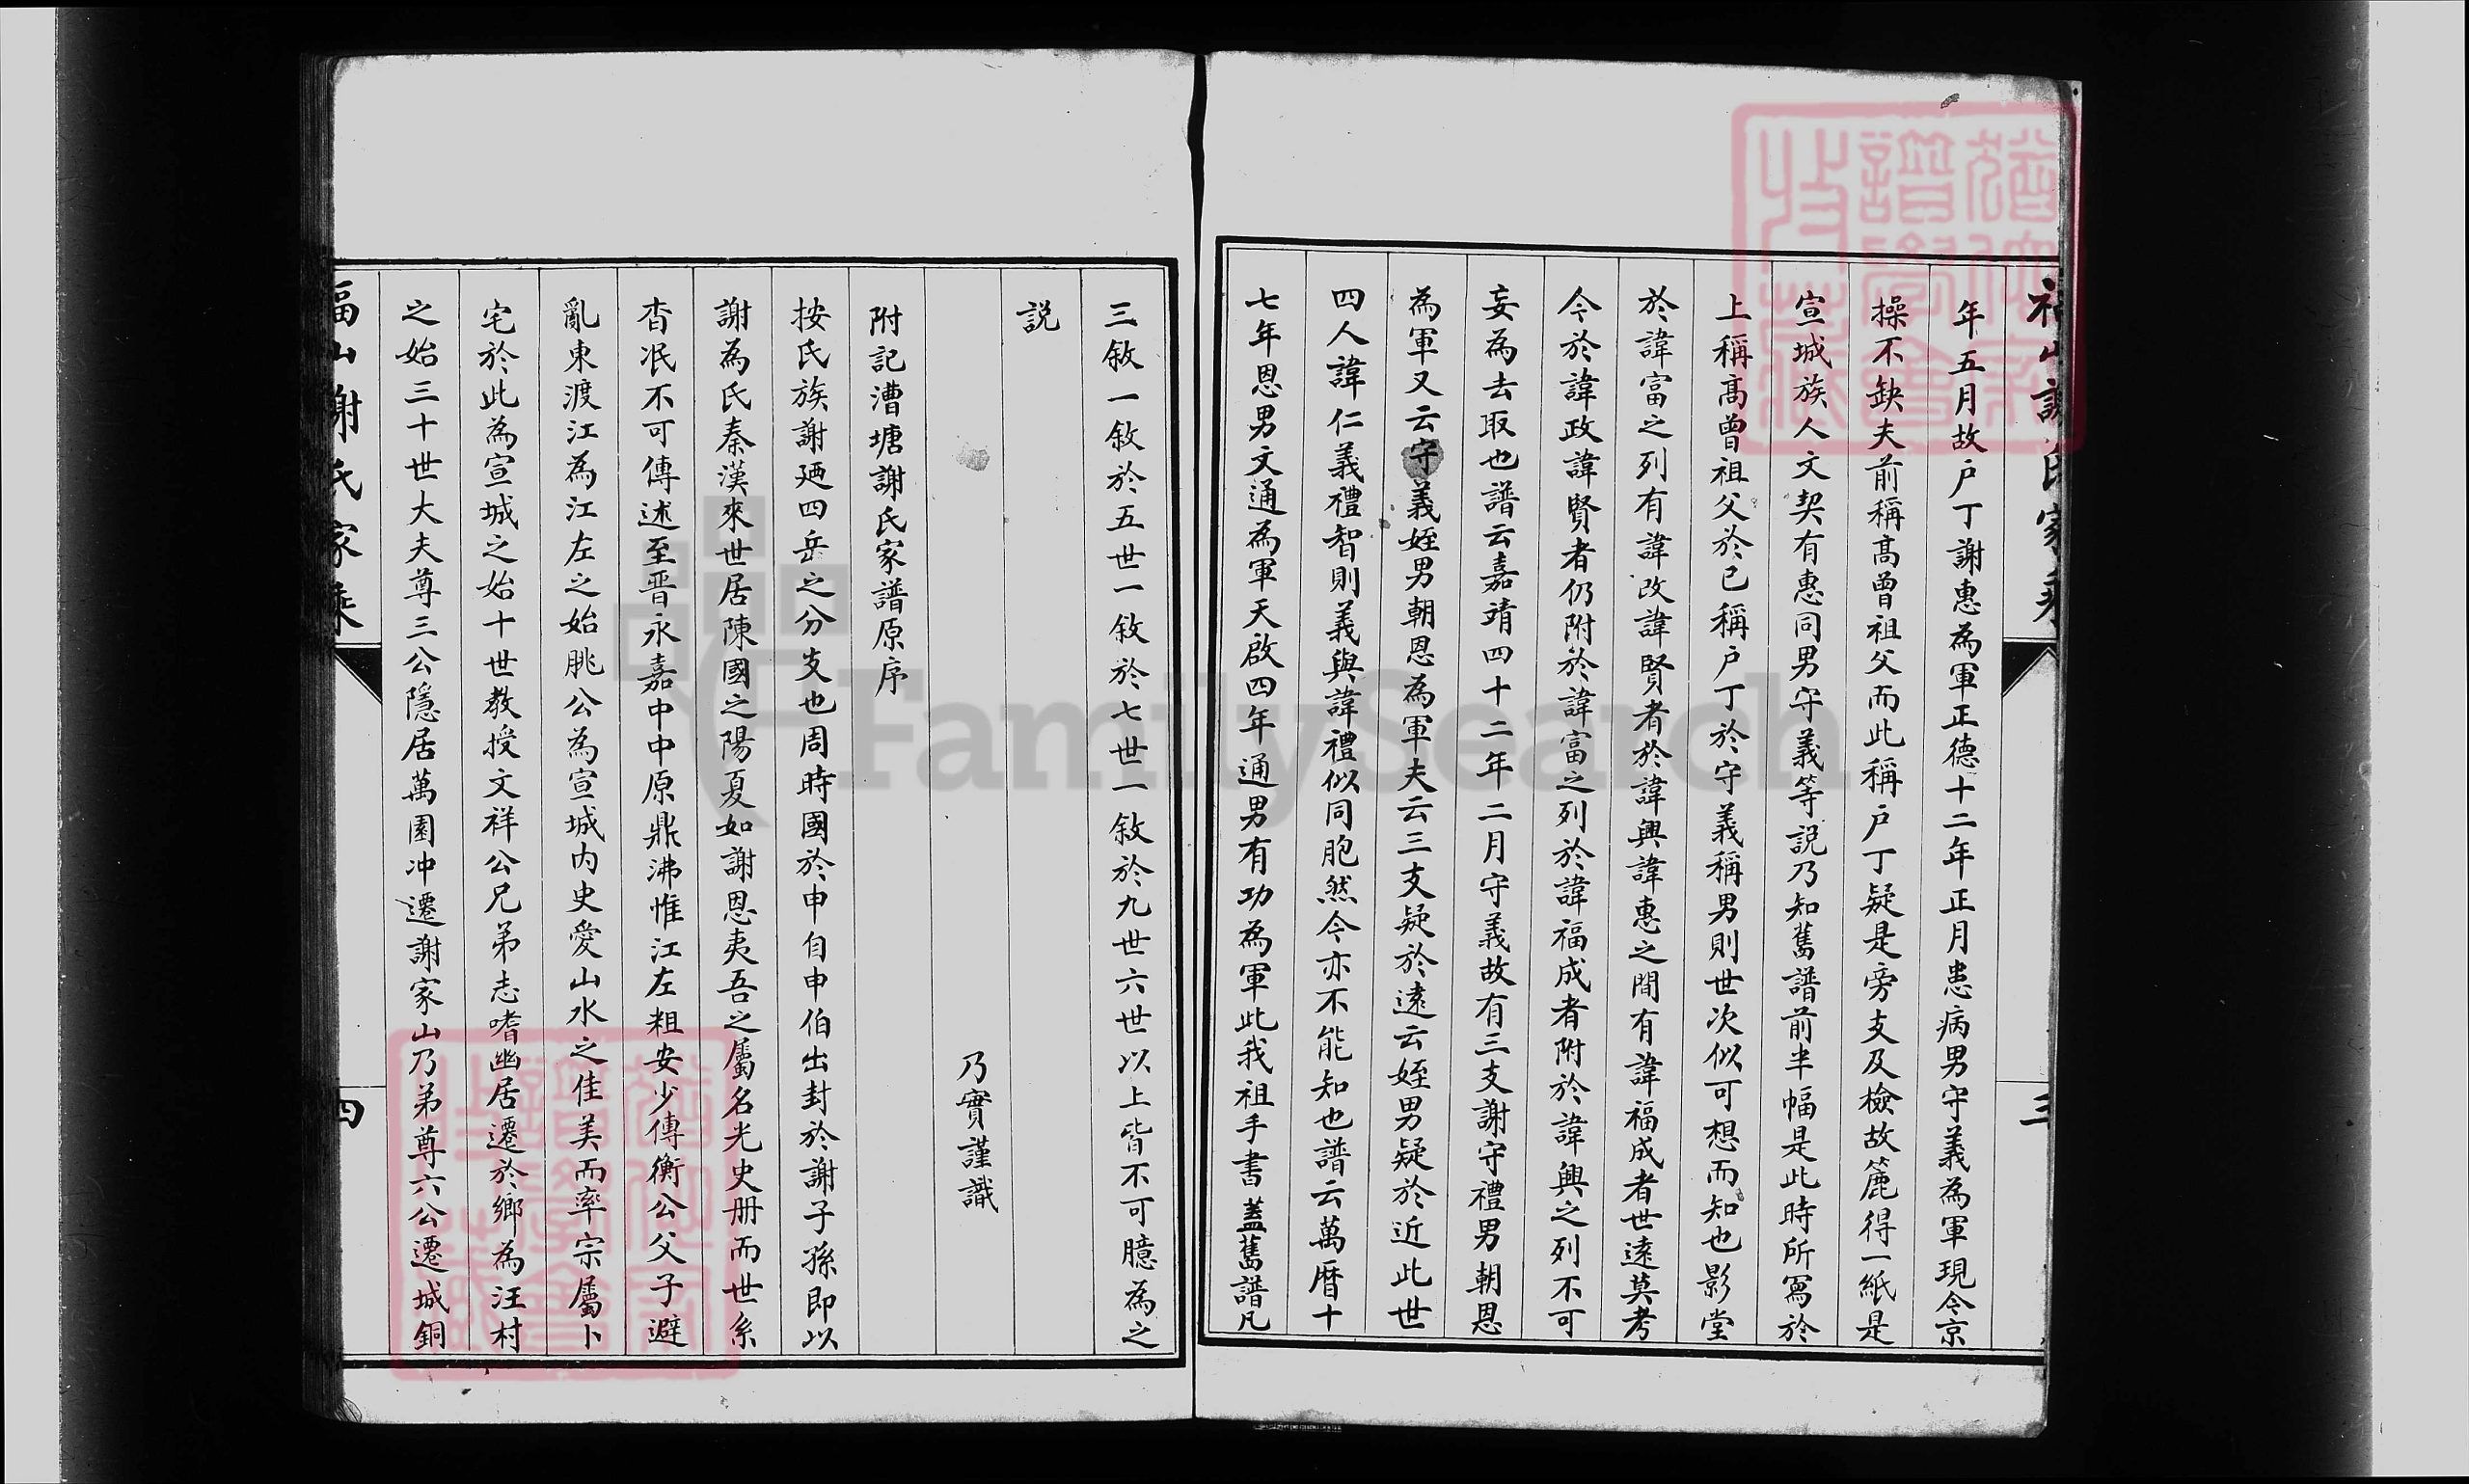 福山謝氏家乘
三
年五月故户丁謝惠為軍正德十二年正月患病男守義為軍現今京
操不缺夫前稱髙曾祖父而此稱户丁疑是旁支及檢故簏得一紙是
宣城族人文契有惠同男守義等説乃知舊譜前半幅是此時所寫於
上稱髙曾祖父於已稱户丁於守義稱男則世次似可想而知也影堂
於諱富之列有諱改諱賢者於諱興諱惠之間有諱福成者世遠莫考
今於諱政諱賢者仍附於諱富之列於諱福成者附於諱興之列不可
妄為去取也譜云嘉靖四十二年二月守義故有三支謝守禮男朝恩
為軍又云守義姪男朝恩為軍夫云三支疑於遠云姪男疑於近此世
四人諱仁義禮智則義與諱禮似同胞然今亦不能知也譜云萬曆十
七年恩男文通為軍天啟四年通男有功為軍此我祖手書蓋舊譜凡
三敘一敘於五世一敘於七世一敘於九世六世以上皆不可臆為之
説
乃實謹識
附記漕塘謝氏家譜原序
按氏族謝廼四岳之分支也周時國於申自申伯出封於謝子孫即以
謝為氏秦漢來世居陳國之陽夏如謝恩夷吾之屬名光史册而世系
杳泯不可傳述至晋永嘉中中原鼎沸惟江左粗安少傳衡公父子避
亂東渡江為江左之始朓公為宣城内史愛山水之佳美而率宗屬卜
宅於此為宣城之始十世教授文祥公兄弟志嗜幽居遷於鄉為汪村
之始三十世大夫尊三公隱居萬園冲遷謝家山乃弟尊六公遷城銅
福山謝氏家乘
四
FamilySearch